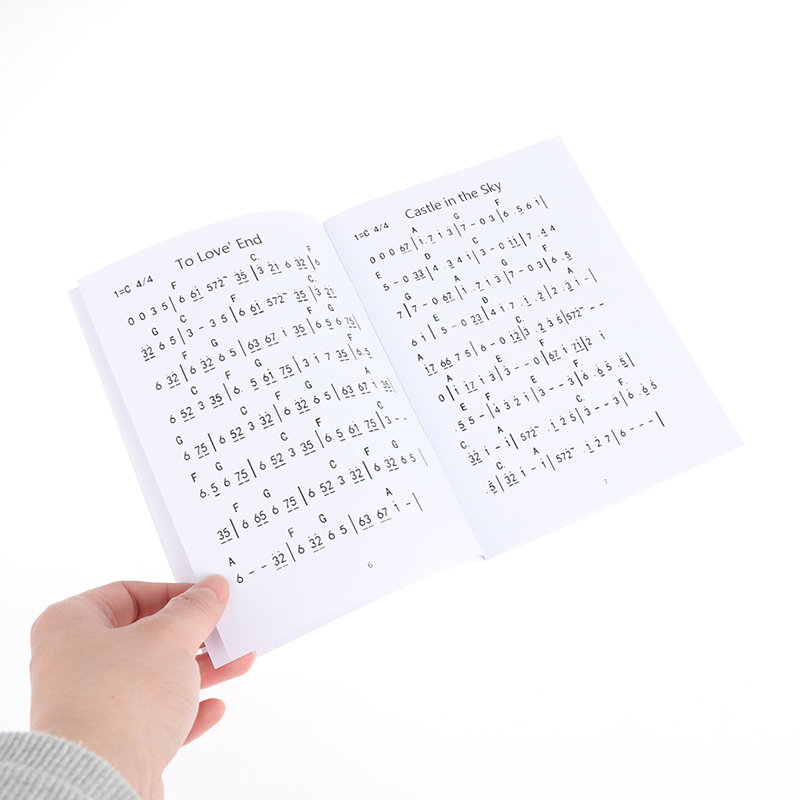 To Love' End
1=C 4/4
F C. F
0 0 3 5 | 6 6i 572~ 35 | 3 2i 6 32 | 6
G C F C
32 6 5 | 3 - 3 5 | 6 6i 572~ 35 | 3 2i
F G
6 32 | 6 32 6 5 | 63 67 i 35 | 6.5 6 75
C F C F
6 52 3 35 | 6. 5 61 75 | 3 i 7 35 | 6.5
G C F G A
6 75 | 6 52 3 32 | 6 32 6 5 | 63 67 i 35
F G C F C
6.5 6 75 | 6 52 3 35 | 6.5 61 75 | 3 - -
F G C F G
35 | 6 65 6 75 | 6 52 3 32 | 6 32 6 5
A F G A
6 - - 32 | 6 32 6 5 | 63 67 i - |
6
Castle in the Sky
1=C 4/4
A G F
0 0 0 67 | i .7 i 3 | 7 - 0 3 | 6 .5 6 i |
E D C
5 - 0 33 | 4 .3 4 i | 3 - 0 ii | 7 .4 4
G A G F
7 | 7 - 0 67 | i .7 i 3 | 7 - 0 3 | 6 .5
E D A
6 i | 5 - 0 23 | 4 i 7 .i | 2 .2 .3 i - |
A C
i7 66 7 5 | 6 - 0 12 | 3 .2 3 5 | 572~ - - -
A F
0 | i i7 i 3 | 3 - - 0 | 67 i 7i | 2 i
E F E F
.5 5 - | 4 3 2 i | 3 - - 3 | 6 .6 5 .5 |
C. A C. F
32 i - i | 572~ .i 2 5 | 3 - - 3 | 6 .6 5
C. A
.5 | 32 i - i | 572~ .i 2 7 | 6 - - - |
7